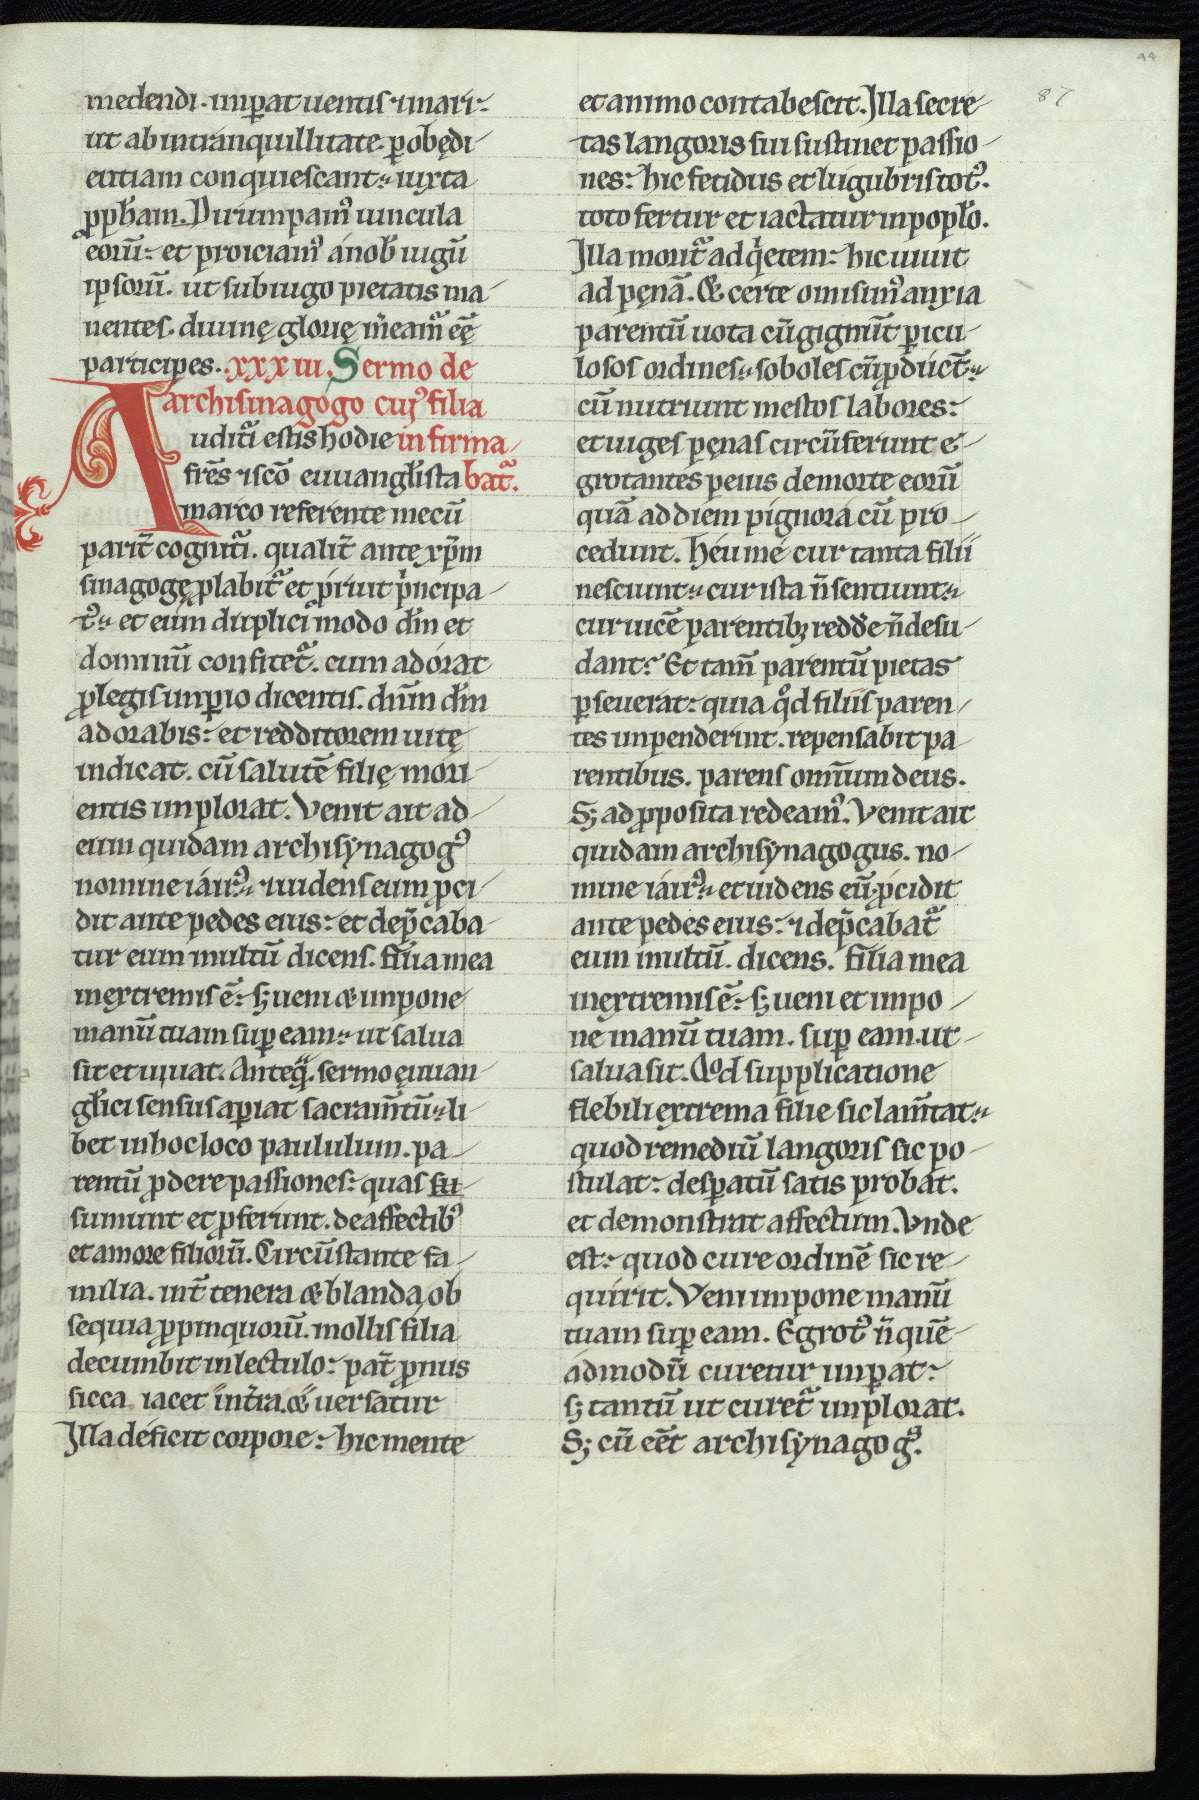 44
87
medendi. imꝑat uentis ⁊mari:
ut ab intranquillitate. ꝑ obędi
entiam conquiescant: iuxta
ꝓph̄am. Dirumpamꝰ uincula
eorū: et proiciamꝰ a nob̄ iugū
ipsorū. ut sub iugo pietatis ma
nentes. diuinę glorię m̄eamͣ eē
participes. .xxxiii. Sermo de
archisinagogo cuiꝰ filia
Auditͥ estis hodie infirma
fr̄es ⁊ scō euuangl̄ista batͣ.
marco referente mecū
parit̄ cognitͣ. qualit̄ ante xp̄m
sinagogę ꝓlabitͣ et p̄riuit pͥncipa
tꝰ: et eum dupliciͥ modo d̄m et
dominū confitetͣ. cum adorat
ꝓ legis imꝑio dicentis. dn̄m d̄m
adorabis: et redditorem uitę
indicat. cū salutē filię mori
entis implorat. Venit ait ad
eum quidam archisynagogꝰ
nomine iairꝰ: ⁊uidens eum ꝓci
dit ante pedes eius: et dep̄caba
tur eum multū dicens. filia mea
in extremis ē: sꝫ ueni & impone
manū tuam suꝑ eam: ut salua
sit et uiuat. Anteqͣ. sermo ęuuan
gl̄ici sensus aꝑiat sacram̄tū: li
bet in hoc loco paululum. pa
rentū ꝓdere passiones: quas su
sumunt et ꝑferunt. de affectibꝰ
et amore filiorū. Circūstante fa
milia. int̄ tenera & blanda ob
sequia ꝓpinquorū. mollis filia
decumbit in lectulo: pat̄ ꝓnus
sicca iacet int̄ra. & uersatur
Illa deficit corpore: hic mente
et animo contabescit. Illa secre
tas langoris sui sustinet passio
nes: hic fetidus et lugubris totꝰ.
toto fertur et iactatur in popl̄o.
Illa moritͣ ad qͥetem: hic uiuit
ad pęnā. & certe omisimꝰ anxia
parentū uota cū gignūt ꝑicu
losos ordines: soboles cū ꝓducūt:
cū nutriunt mestos labores:
et iuges pęnas circūferunt ę
grotantes peius de morte eorū
quā ad diem pignora cū pro
cedunt. Heu me cur tanta filii
nesciunt: cur ista n̄ sentiunt:
cur uicē parentibꝫ redde n̄ desu
dant: Et tam̄ parentū pietas
ꝑseuerat: quia qͦd filiis paren
tes impenderint. repensabit pa
rentibus. parens omīum deus.
Sꝫ ad ꝓposita redeamꝰ. Venit ait
quidam archisynagogus. no
mine iairꝰ: et uidens eū ꝓcidit
ante pedes eius: ⁊ dep̄cabatͣ
eum multū. dicens. filia mea
in extremis ē: sꝫ ueni et impo
ne manū tuam. suꝑ eam. ut
salua sit. Qod supplicatione
flebili extrema filie sic lam̄tat:
quod remediū langoris sic po
stulat: desꝑatū satis probat.
et demonstrat affectum. Vnde
est: quod cure ordinē sic re
quirit. Veni impone manū
tuam suꝑ eam. Egrotꝰ n̄ quē
admodū curetur imꝑat:
sꝫ tantū ut curetͣ implorat.
Sꝫ cū eēt archisynagogꝰ.